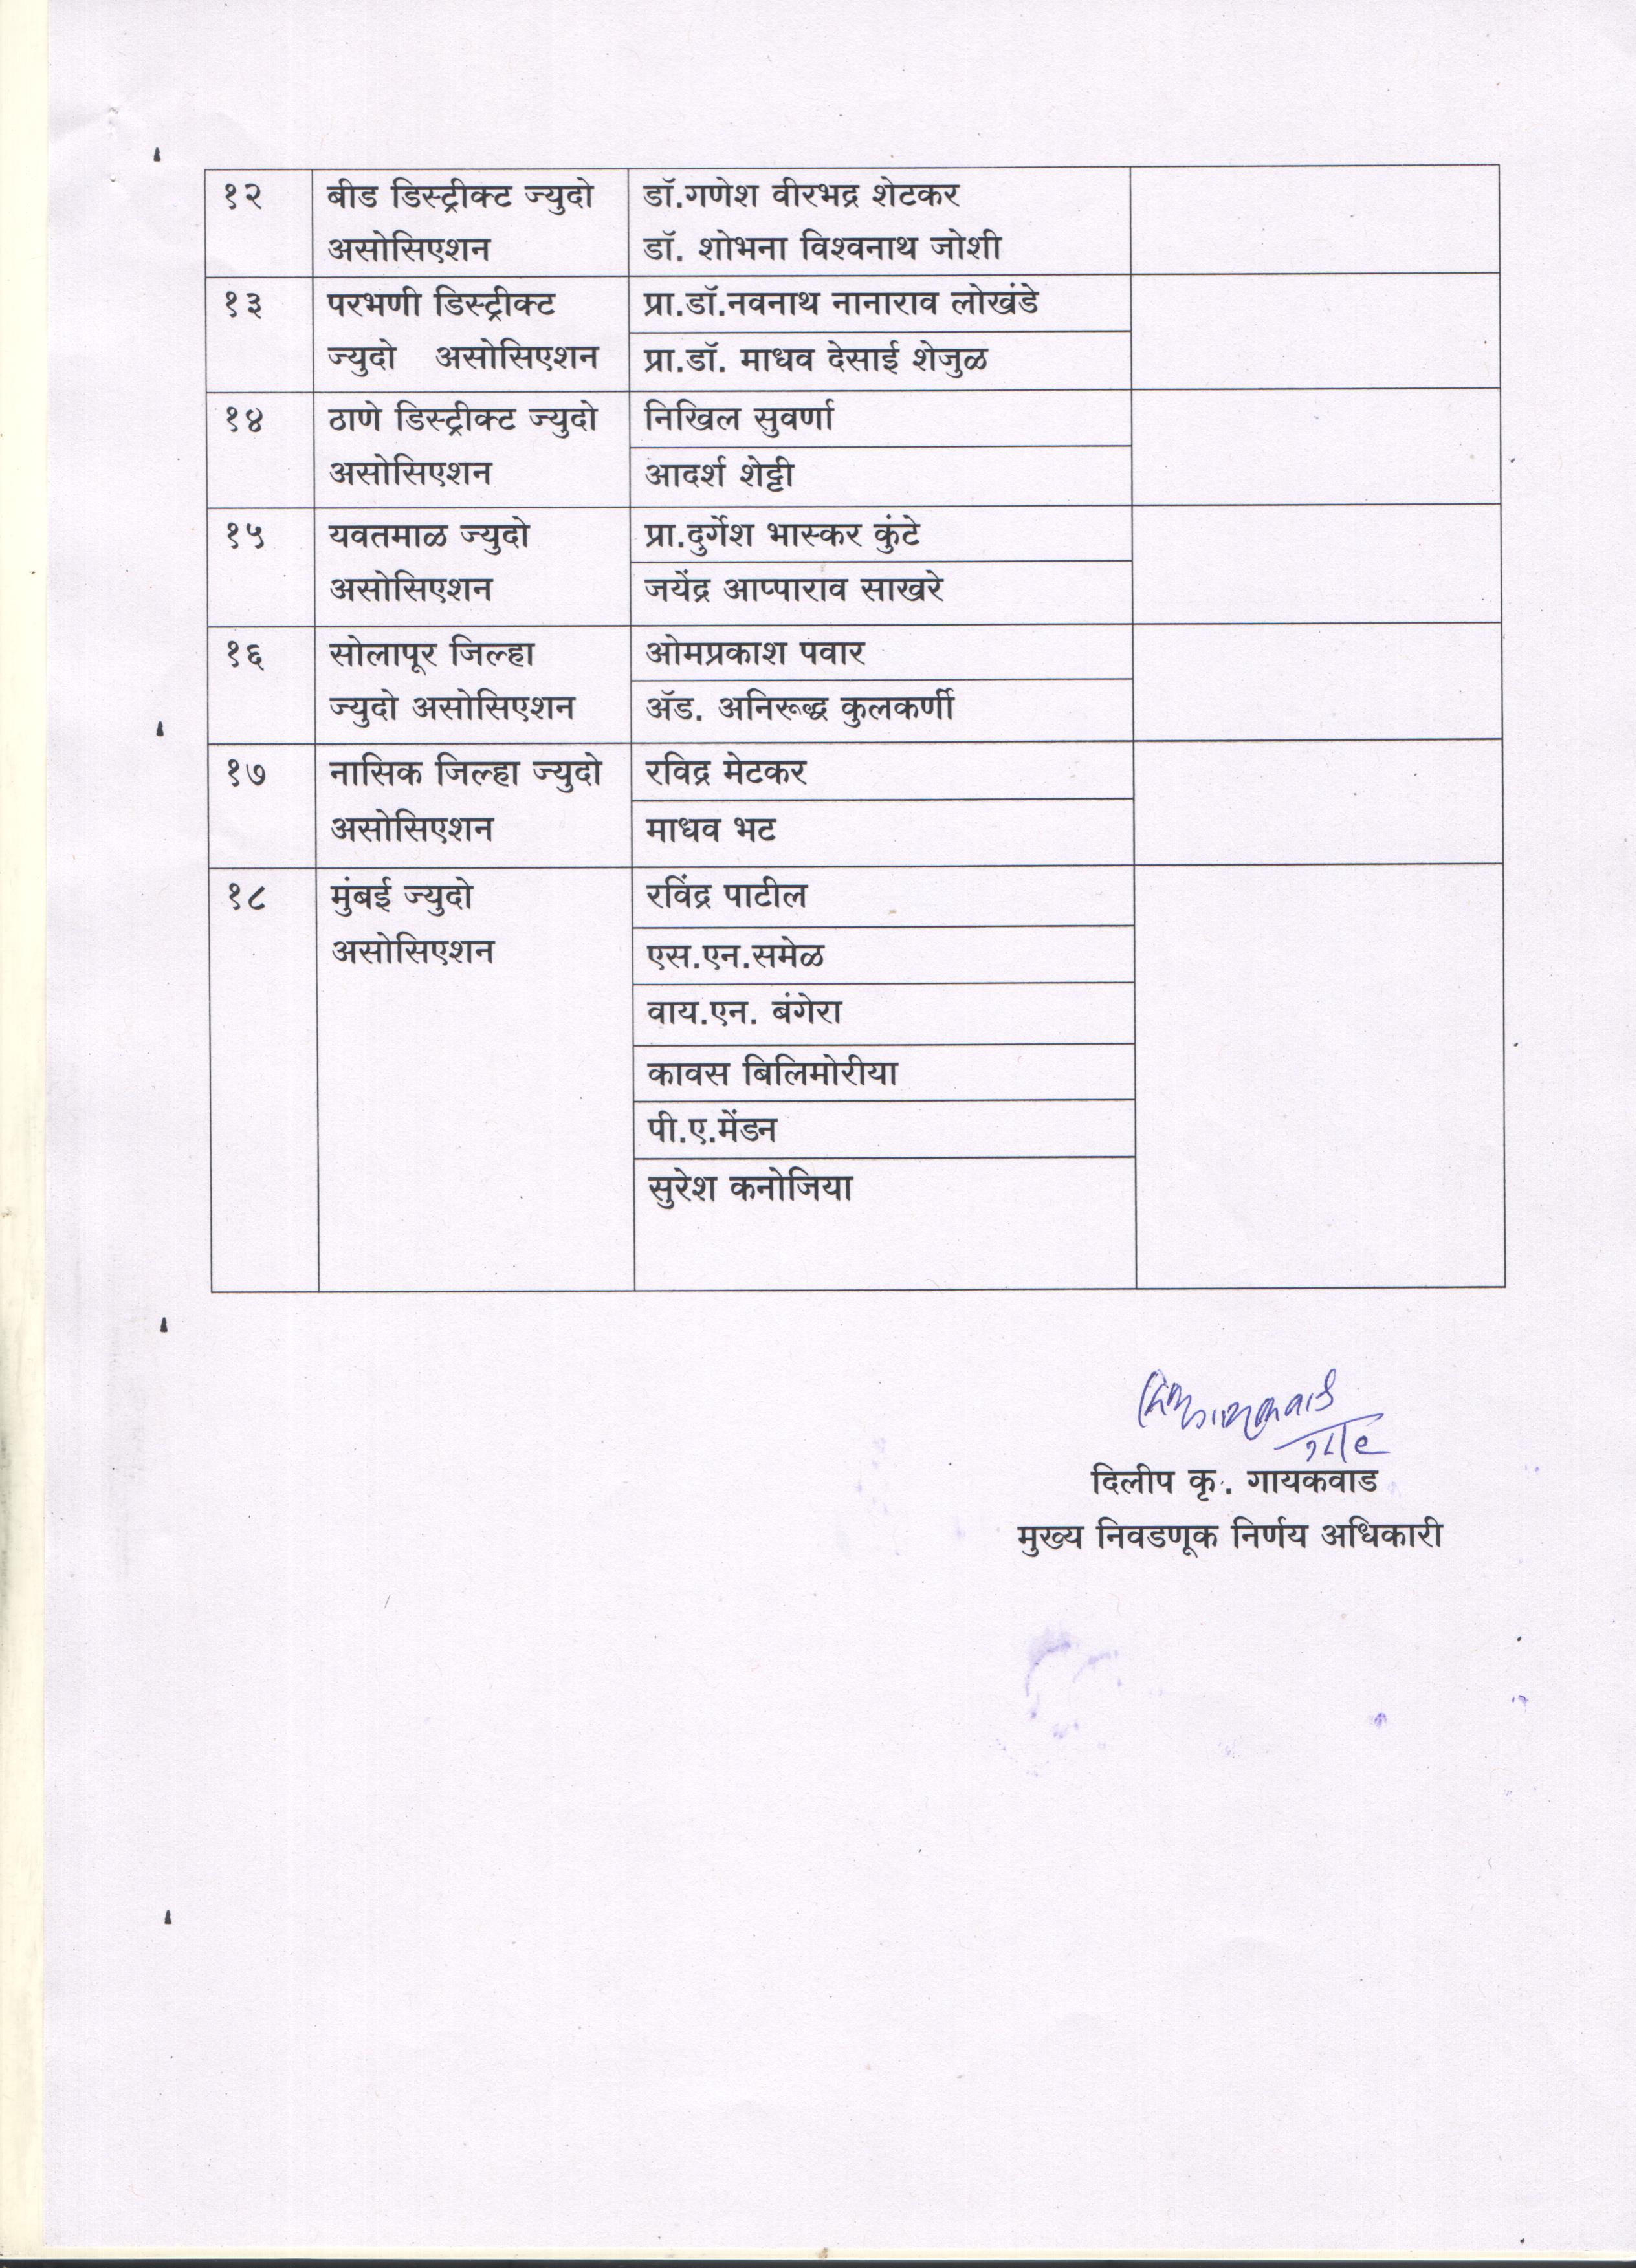 १२ बीड डिस्ट्रीक्ट ज्युदो डॉ.गणेश वीरभद्र शेटकर
असोसिएशन डॉ. शोभना विश्वनाथ जोशी
१३ परभणी डिस्ट्रीक्ट प्रा.डॉ.नवनाथ नानाराव लोखंडे
ज्युदो असोसिएशन प्रा.डॉ. माधव देसाई शेजुळ
१४ ठाणे डिस्ट्रीक्ट ज्युदो निखिल सुवर्णा
असोसिएशन आदर्श शेट्टी
१५ यवतमाळ ज्युदो प्रा.दुर्गेश भास्कर कुंटे
असोसिएशन जयेंद्र आप्पाराव साखरे
१६ सोलापूर जिल्हा ओमप्रकाश पवार
ज्युदो असोसिएशन ॲड. अनिरूद्ध कुलकर्णी
१७ नासिक जिल्हा ज्युदो रविद्र मेटकर
असोसिएशन माधव भट
१८ मुंबई ज्युदो रविंद्र पाटील
असोसिएशन एस.एन.समेळ
वाय.एन. बंगेरा
कावस बिलिमोरीया
पी.ए.मेंडन
सुरेश कनोजिया
दिलीप कृ. गायकवाड
मुख्य निवडणूक निर्णय अधिकारी